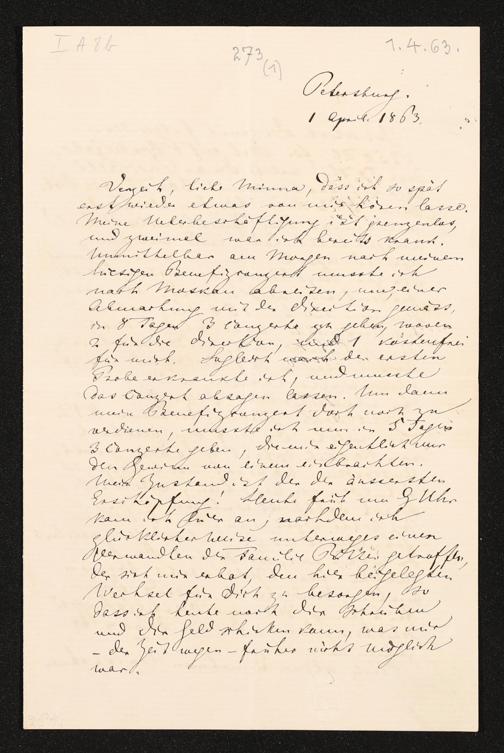 I A 8b
273
(1)
1.4.63.
Petersburg.
1 April. 1863.
Verzeih, liebe Minna, dass ich so spät
erst wieder etwas von mir hören lasse.
Meine Ueberbeschäftigung ist grenzenlos,
und zweimal war ich bereits krank.
Unmittelbar am Morgen nach meinem
hiesigen Benefizconzert musste ich
nach Moskau abreisen, um, einer
Abmachung mit der Direction gemäss,
in 8 Tagen 3 Conzerte zu geben, wovon
2 für die Direktion, und 1 kostenfrei
für mich. Sogleich nach der ersten
Probe erkrankte ich, und musste
das Conzert absagen lassen. Um dann
mein Benefizconzert doch noch zu
verdienen, musste ich nun in 5 Tagen
3 Conzerte geben, die mir eigentlich nur
den Gewinn von einem einbrachten.
Mein Zustand ist der der äussersten
Erschöpfung! Heute früh um 9 Uhr
kam ich hier an, nachdem ich
glücklicherweise unterweges einen
Verwandten der Familie getroffen,
der sich mir erbot, den hier beigelegten
Wechsel für Dich zu besorgen, so
dass ich heute noch Dir schreiben
und Dir Geld schicken kann, was mir
– der Zeit wegen – früher nicht möglich
war.